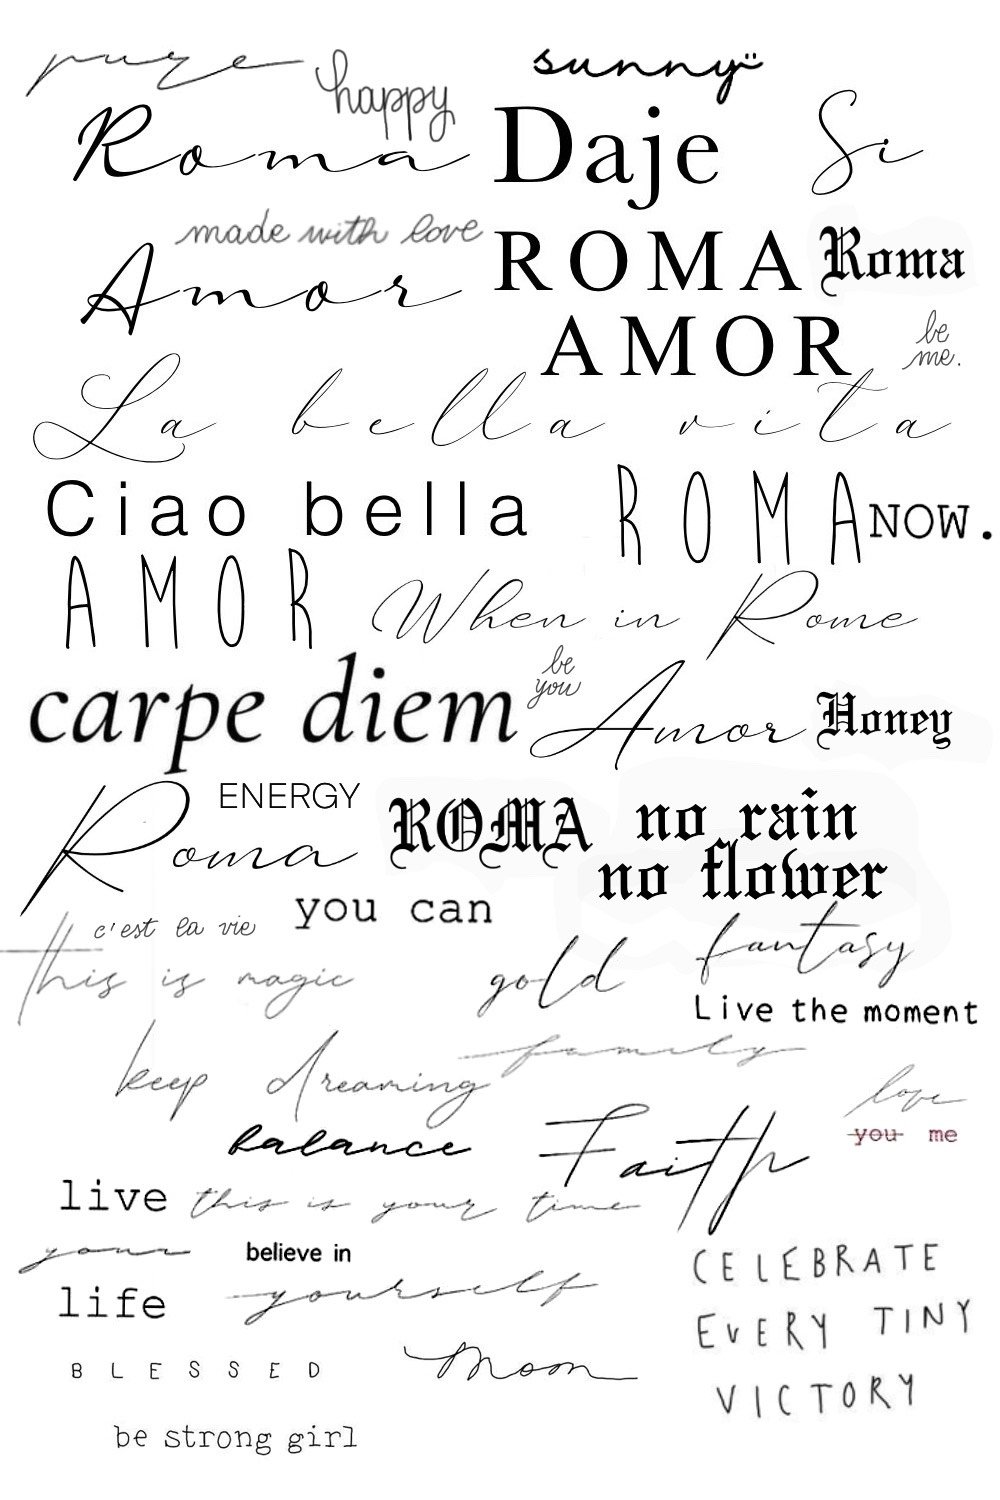 pure
happy
sunny
Roma
Daje
Si
made with love
Amor
ROMA
Roma
AMOR
be
me.
La bella vita
Ciao bella
ROMA
NOW.
AMOR
When in Rome
carpe diem
be
you
Amor
Honey
ENERGY
Roma
ROMA
no rain
no flower
c'est la vie
you can
this is magic
gold
fantasy
Live the moment
keep dreaming
family
love
you me
balance
Faith
live
this is your time
your
believe in
life
yourself
CELEBRATE
EVERY TINY
VICTORY
BLESSED
Mom
be strong girl